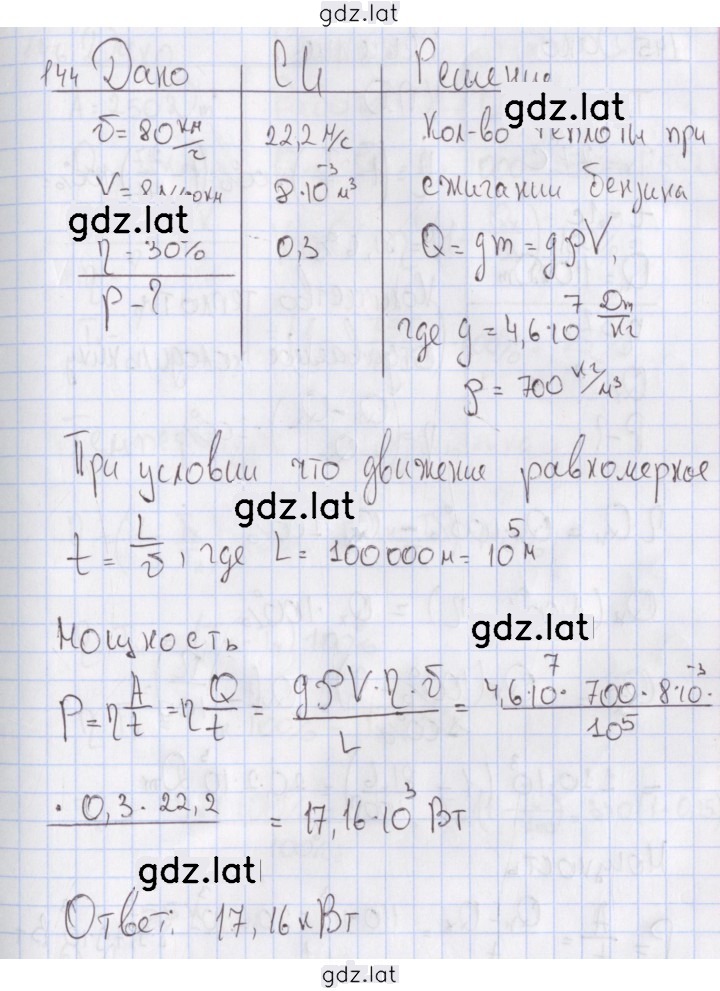 gdz.lat
144 Дано СИ Решение
gdz.lat
υ = 80 км/ч 22,2 м/с Кол-во теплоты при
V = 8 8·10⁻³ м³ сжигании бензина
gdz.lat
η = 30% 0,3 Q = qm = qρV,
P - ?
где q = 4,6·10⁷ Дж/кг
ρ = 700 кг/м³
При условии что движение равномерное
gdz.lat
t = L/υ, где L = 100000 м = 10⁵ м
Мощность
gdz.lat
P = η A/t = η Q/t = qρV·η·υ/L = 4,6·10⁷· 700·8·10⁻³·/10⁵
· 0,3·22,2 = 17,16·10³ Вт
gdz.lat
Ответ: 17,16 кВт
gdz.lat